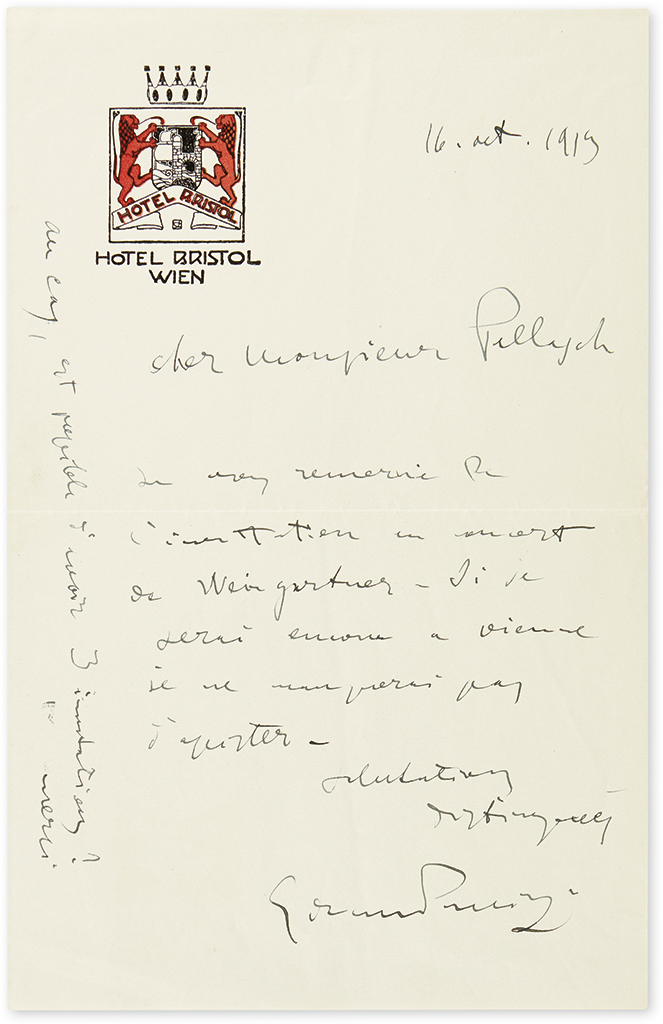 HOTEL BRISTOL
HOTEL BRISTOL
WIEN
16. oct. 1919
cher Monsieur
Je vous remercie de
l'invitation au concert
de Weingartner – Si je
serai encore a vienne
je ne manquerai pas
d'assister –
salutations
distinguées
au cas, est possible d'avoir 3 invitations?
merci